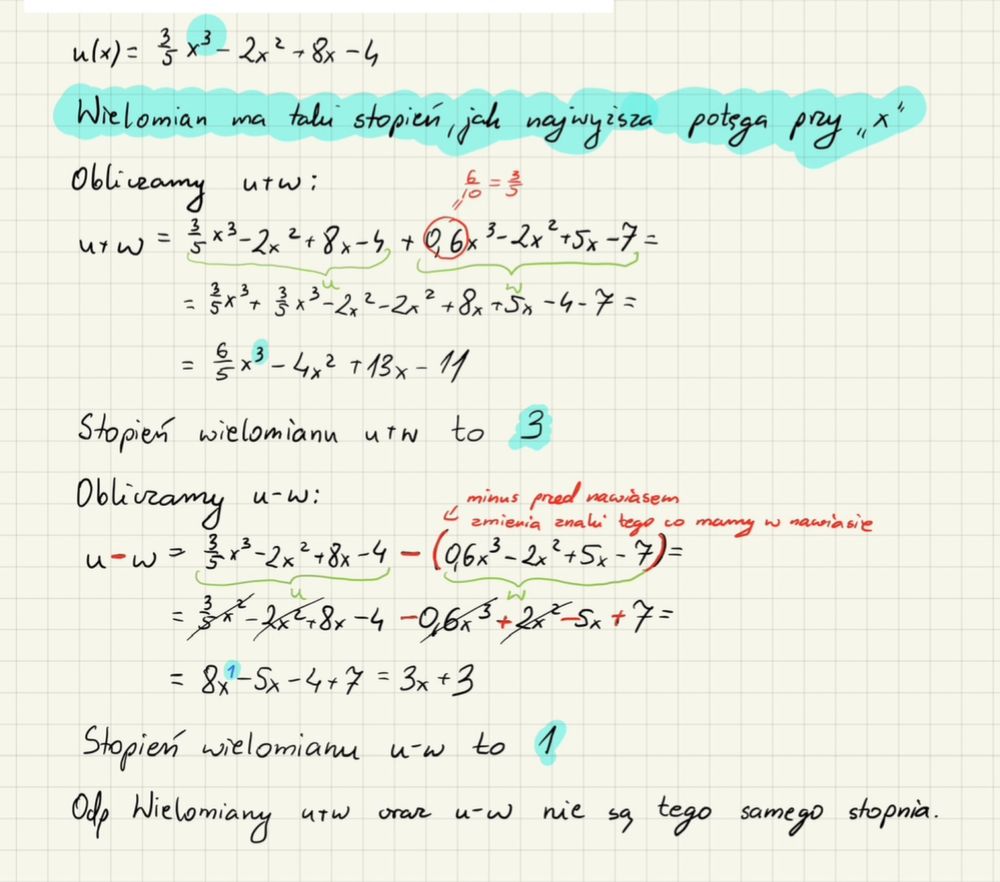 u(x) = 3/5 x³ - 2x² + 8x - 4
Wielomian ma taki stopień, jak najwyższa potęga przy „x”
Obliczamy u+w:
6/10 = 3/5
u+w = 3/5 x³ - 2x² + 8x - 4 + 0,6x³ - 2x² + 5x - 7 =
u w
= 3/5 x³ + 3/5 x³ - 2x² - 2x² + 8x + 5x - 4 - 7 =
= 6/5 x³ - 4x² + 13x - 11
Stopień wielomianu u+w to 3
Obliczamy u-w:
minus przed nawiasem
zmienia znaki tego co mamy w nawiasie
u - w = 3/5 x³ - 2x² + 8x - 4 - (0,6x³ - 2x² + 5x - 7) =
u w
= 3/5 x² - 2x² + 8x - 4 - 0,6x³ + 2x² - 5x + 7 =
= 8x¹ - 5x - 4 + 7 = 3x + 3
Stopień wielomianu u-w to 1
Odp Wielomiany u+w oraz u-w nie są tego samego stopnia.